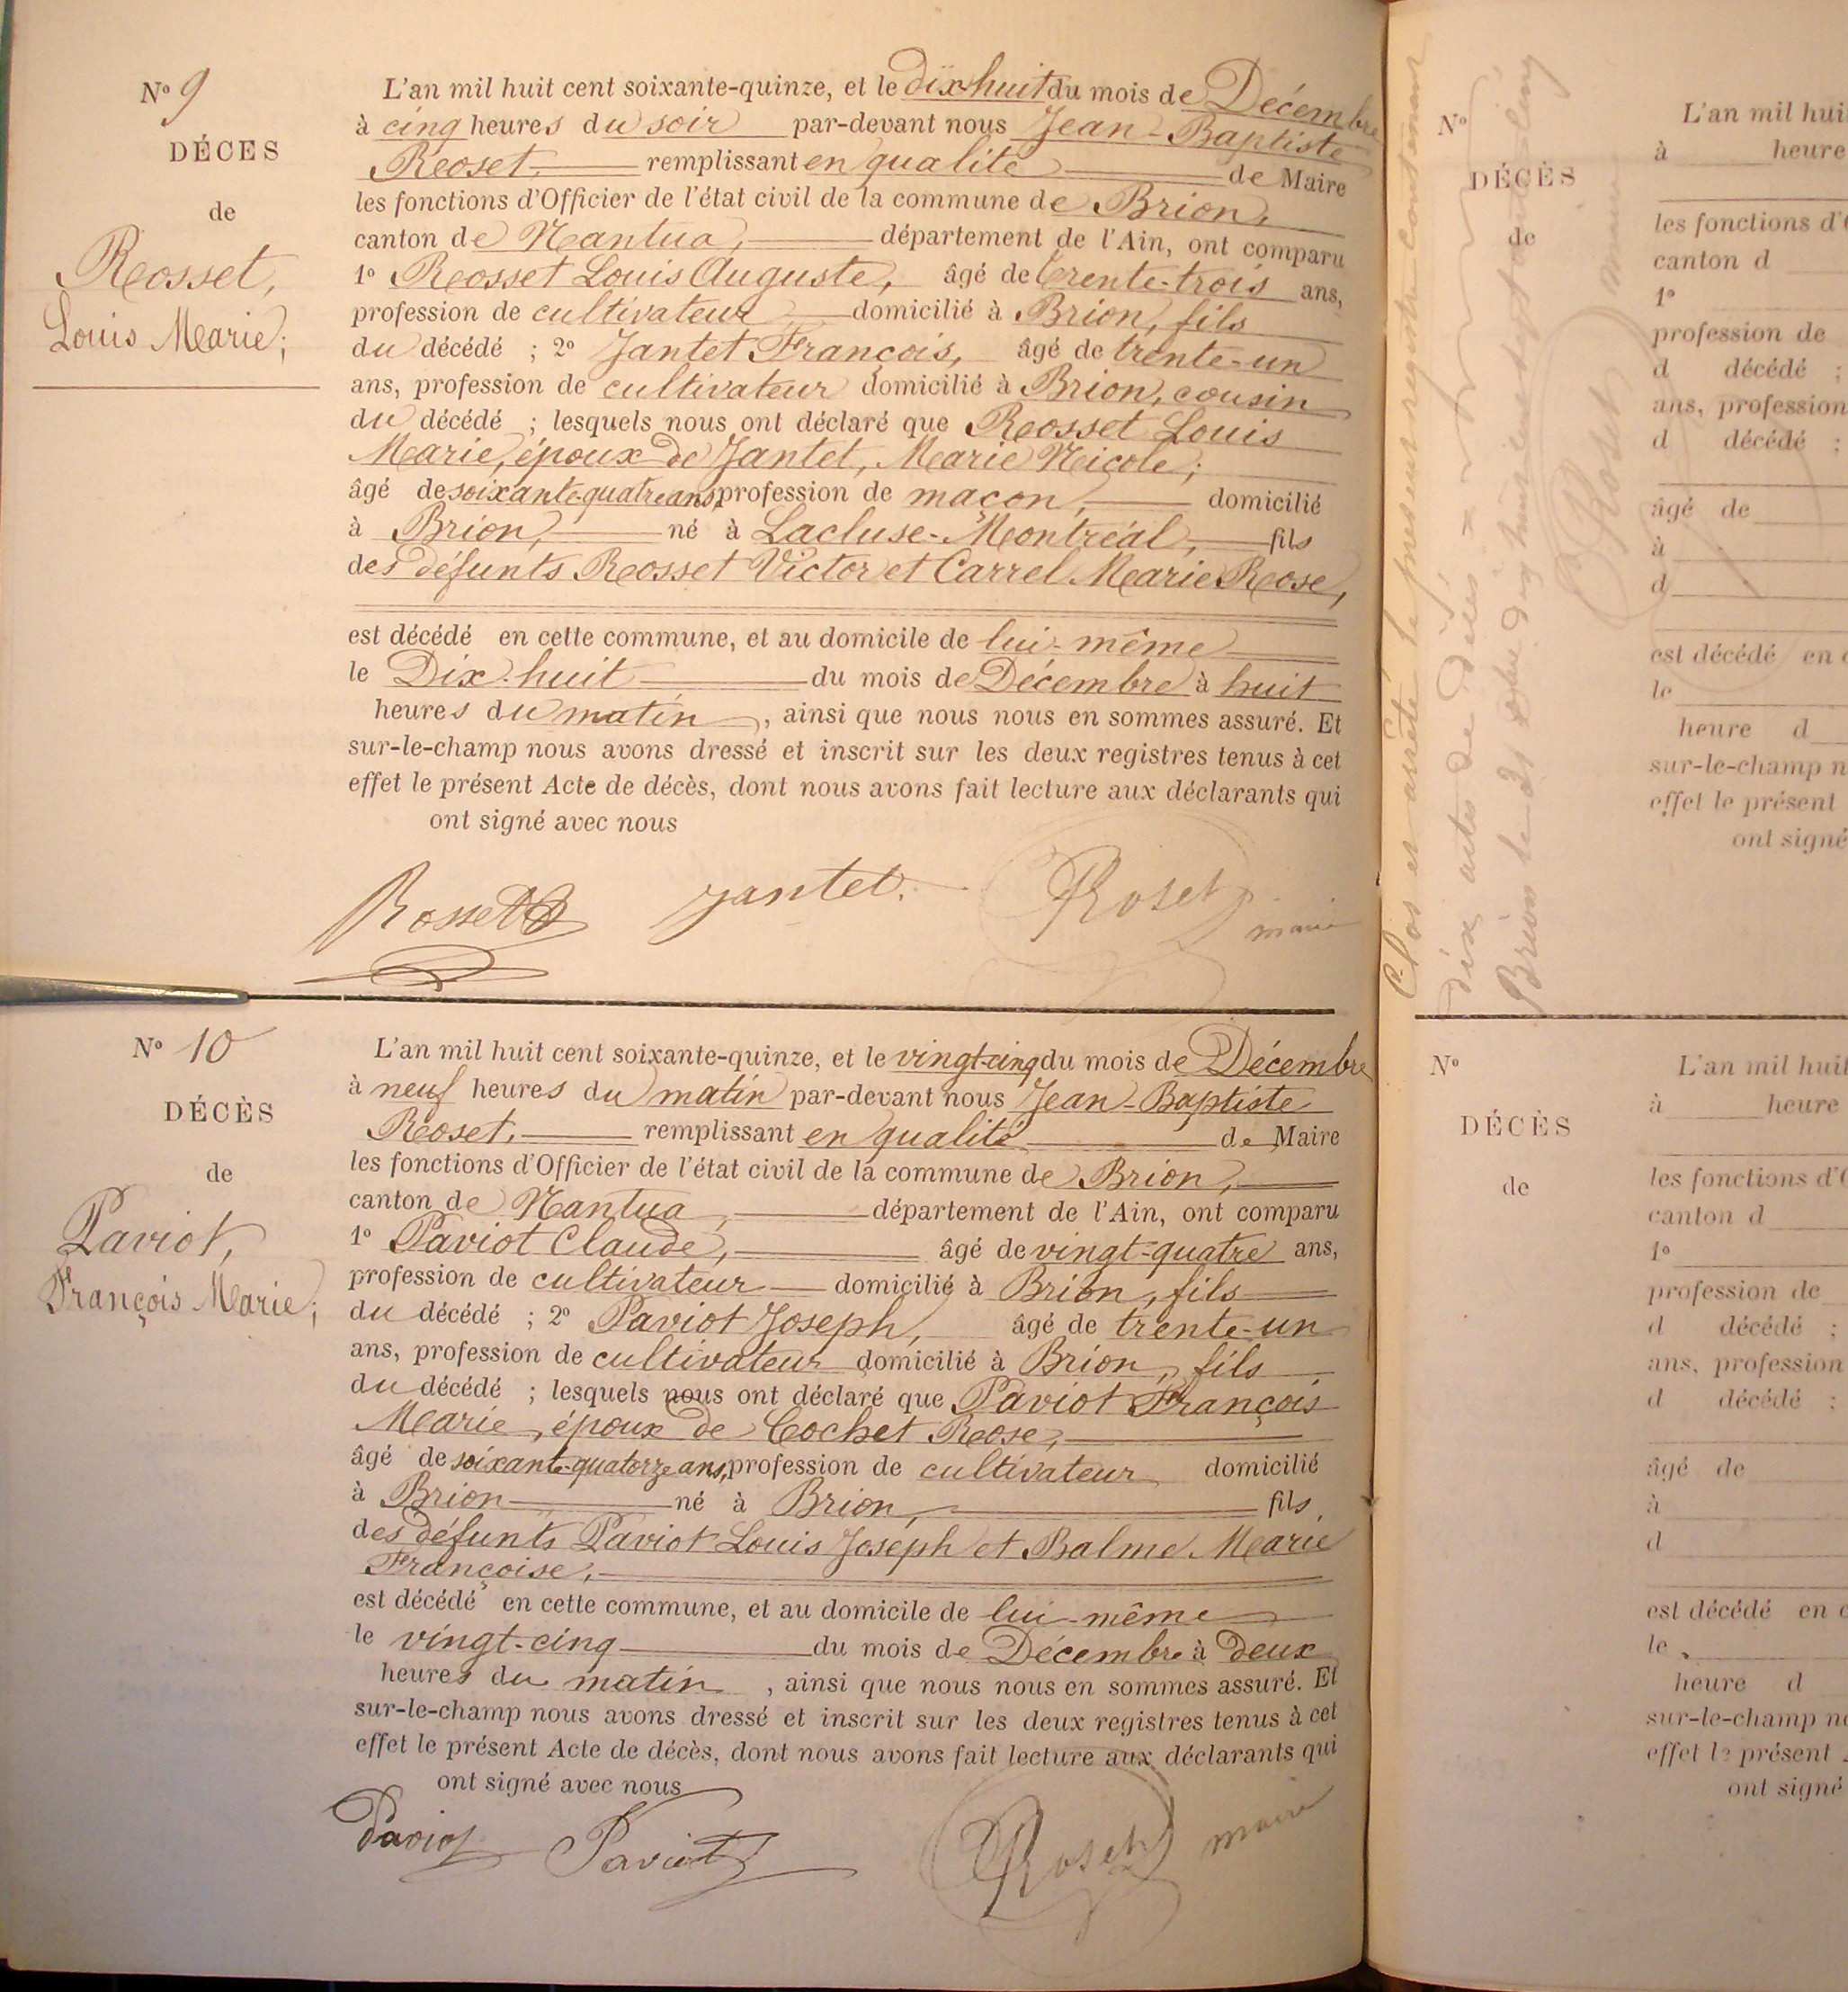 N° 9
DÉCES
de
Rosset,
Louis Marie;
L'an mil huit cent soixante-quinze, et le dix huit du mois de Décembre
à cinq heures du soir par-devant nous Jean-Baptiste
Roset, remplissant en qualité de Maire
les fonctions d'Officier de l'état civil de la commune de Brion,
canton de Nantua, département de l'Ain, ont comparu
1° Rosset Louis Auguste, âgé de trente-trois ans,
profession de cultivateur domicilié à Brion, fils
du décédé ; 2° Jantet François, âgé de trente-un
ans, profession de cultivateur domicilié à Brion, cousin
du décédé ; lesquels nous ont déclaré que Rosset Louis
Marie, époux de Jantet, Marie Nicole;
âgé de soixante-quatre ans, profession de maçon, domicilié
à Brion, né à Lacluse-Montréal, fils
des défunts Rosset Victor et Carrel Marie Rose,
est décédé en cette commune, et au domicile de lui-même
le Dix-huit du mois de Décembre à huit
heures du matin, ainsi que nous nous en sommes assuré. Et
sur-le-champ nous avons dressé et inscrit sur les deux registres tenus à cet
effet le présent Acte de décès, dont nous avons fait lecture aux déclarants qui
ont signé avec nous
Rosset Jantet. Roset maire
N° 10
DÉCÈS
de
Paviot,
François Marie;
L'an mil huit cent soixante-quinze, et le vingt-cinq du mois de Décembre
à neuf heures du matin par-devant nous Jean-Baptiste
Roset, remplissant en qualité de Maire
les fonctions d'Officier de l'état civil de la commune de Brion,
canton de Nantua, département de l'Ain, ont comparu
1° Paviot Claude, âgé de vingt-quatre ans,
profession de cultivateur domicilié à Brion, fils
du décédé ; 2° Paviot Joseph, âgé de trente-un
ans, profession de cultivateur domicilié à Brion, fils
du décédé ; lesquels nous ont déclaré que Paviot François
Marie, époux de Cochet Rose,
âgé de soixante-quatorze ans, profession de cultivateur domicilié
à Brion né à Brion, fils
des défunts Paviot Louis Joseph et Balme Marie
Françoise,
est décédé en cette commune, et au domicile de lui-même
le vingt-cinq du mois de Décembre à deux
heures du matin, ainsi que nous nous en sommes assuré. Et
sur-le-champ nous avons dressé et inscrit sur les deux registres tenus à cet
effet le présent Acte de décès, dont nous avons fait lecture aux déclarants qui
ont signé avec nous
Paviot Paviot Roset maire
Clos et arrêté le présent registre contenant
dix actes de décès
Brion le 31 Xbre dix huit cent soixante quinze
Roset maire
N°
DÉCÈS
de
L'an mil huit
à heure
les fonctions d'O
canton d
1°
profession de
d décédé ;
ans, profession
d décédé ;
âgé de
à
d
est décédé en c
le
heure d
sur-le-champ n
effet le présent
ont signé
N°
DÉCÈS
de
L'an mil huit
à heure
les fonctions d'O
canton d
1°
profession de
d décédé ;
ans, profession
d décédé ;
âgé de
à
d
est décédé en c
le
heure d
sur-le-champ no
effet le présent
ont signé